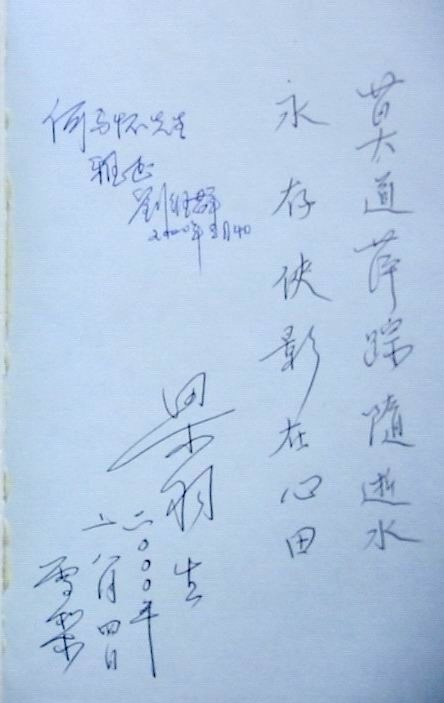 莫道萍踪隨逝水
永存侠影在心田
何与怀先生
雅正
劉维群
2000年2月4日
梁羽生
二〇〇〇年
二月四日
雪梨